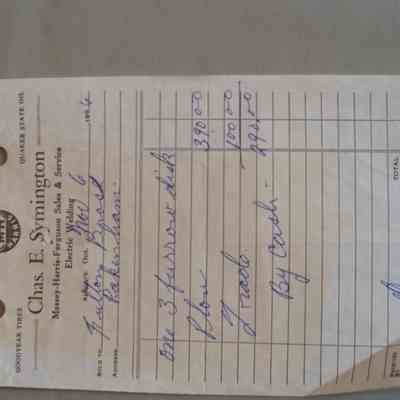 GOODYEAR TIRES QUAKER STATE OIL
Chas. E. Symington
Massey-Harris-Ferguson Sales & Service
Electric Welding
Ont. Nov 6 196
SOLD TO Fulton Bros
ADDRESS Pakenham
One 3 furrow disk
Plow 390.00
Trade. 100.00
By Cash - 290.00
TOTAL